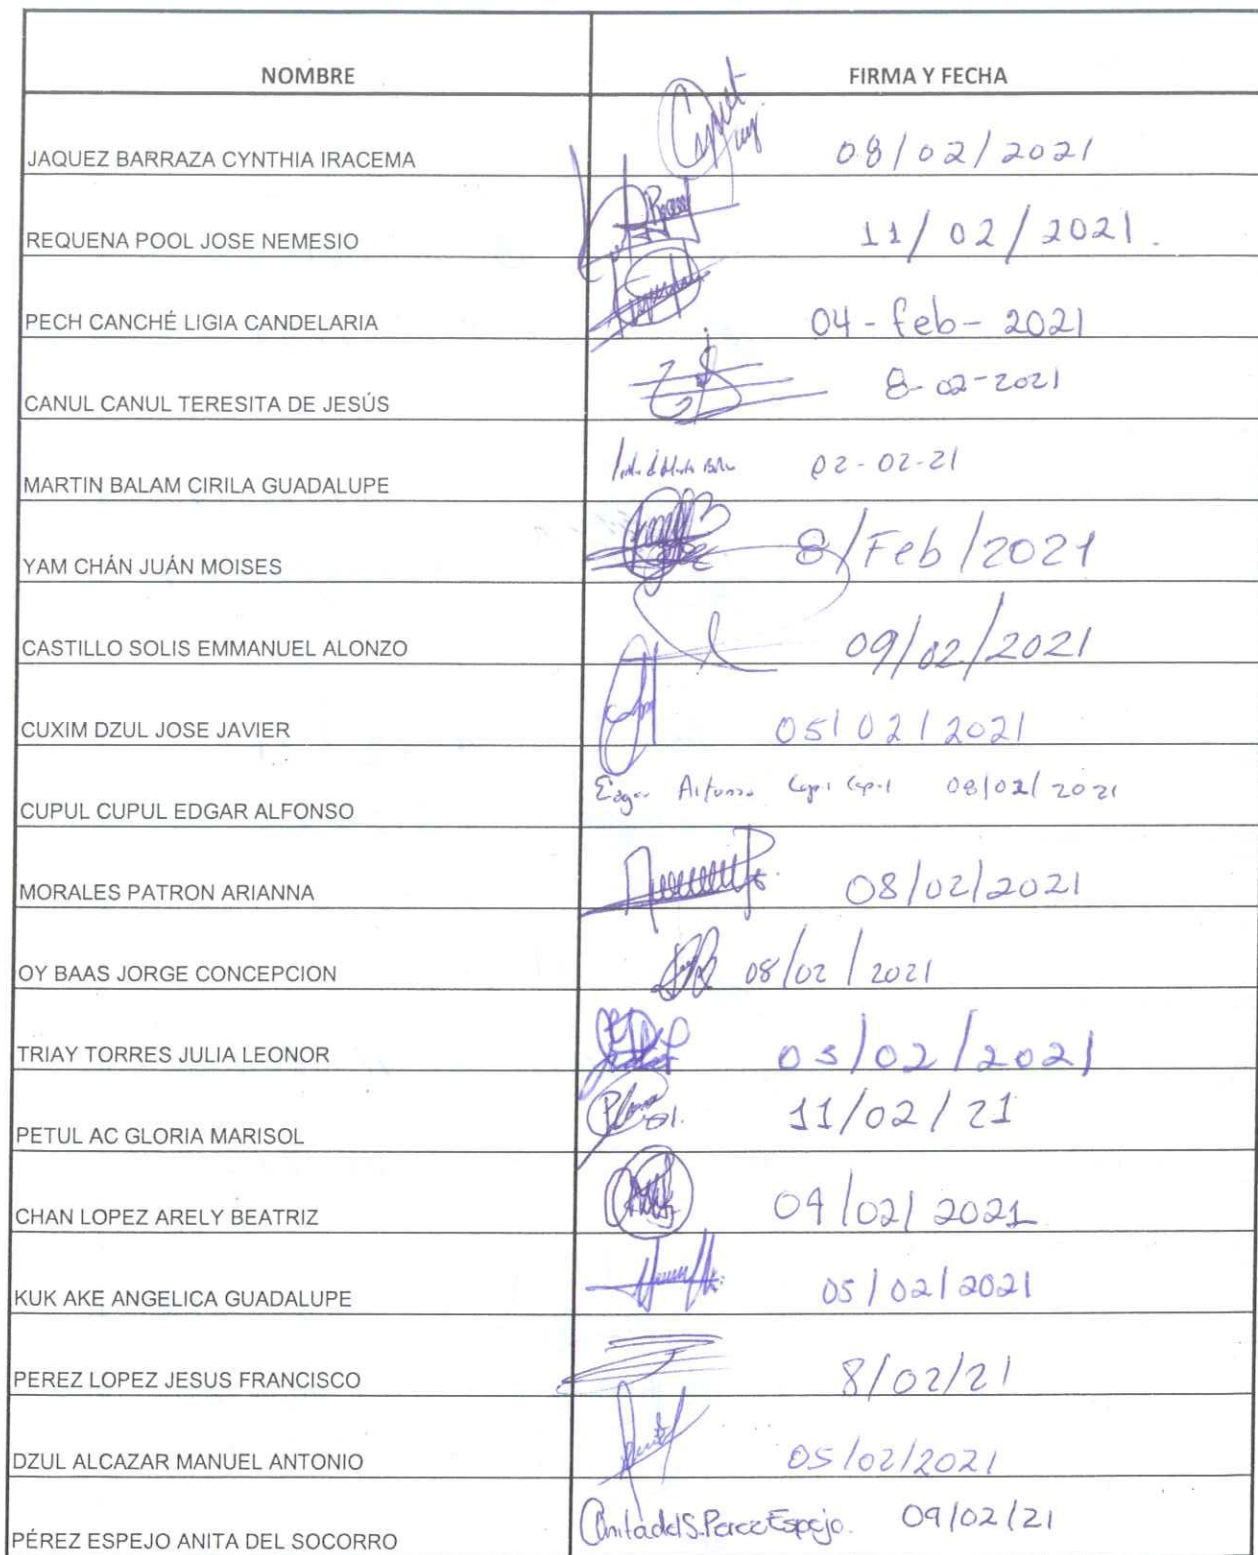 NOMBRE FIRMA Y FECHA
JAQUEZ BARRAZA CYNTHIA IRACEMA 08/02/2021
REQUENA POOL JOSE NEMESIO 11/02/2021.
PECH CANCHÉ LIGIA CANDELARIA 04-feb-2021
CANUL CANUL TERESITA DE JESÚS 8-02-2021
MARTIN BALAM CIRILA GUADALUPE 02-02-21
YAM CHÁN JUÁN MOISES 8/Feb/2021
CASTILLO SOLIS EMMANUEL ALONZO 09/02/2021
CUXIM DZUL JOSE JAVIER 05/02/2021
CUPUL CUPUL EDGAR ALFONSO Edgar Alfonso Cupul Cupul 08/02/2021
MORALES PATRON ARIANNA 08/02/2021
OY BAAS JORGE CONCEPCION 08/02/2021
TRIAY TORRES JULIA LEONOR 03/02/2021
PETUL AC GLORIA MARISOL 11/02/21
CHAN LOPEZ ARELY BEATRIZ 09/02/2021
KUK AKE ANGELICA GUADALUPE 05/02/2021
PEREZ LOPEZ JESUS FRANCISCO 8/02/21
DZUL ALCAZAR MANUEL ANTONIO 05/02/2021
PÉREZ ESPEJO ANITA DEL SOCORRO Anita del S. Perez Espejo. 09/02/21